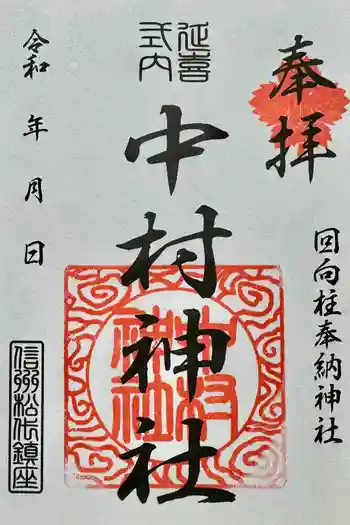 奉拝
回向柱奉納神社
延喜
式内
中村神社
中村
神社
信州松代鎮座
令和 年 月 日